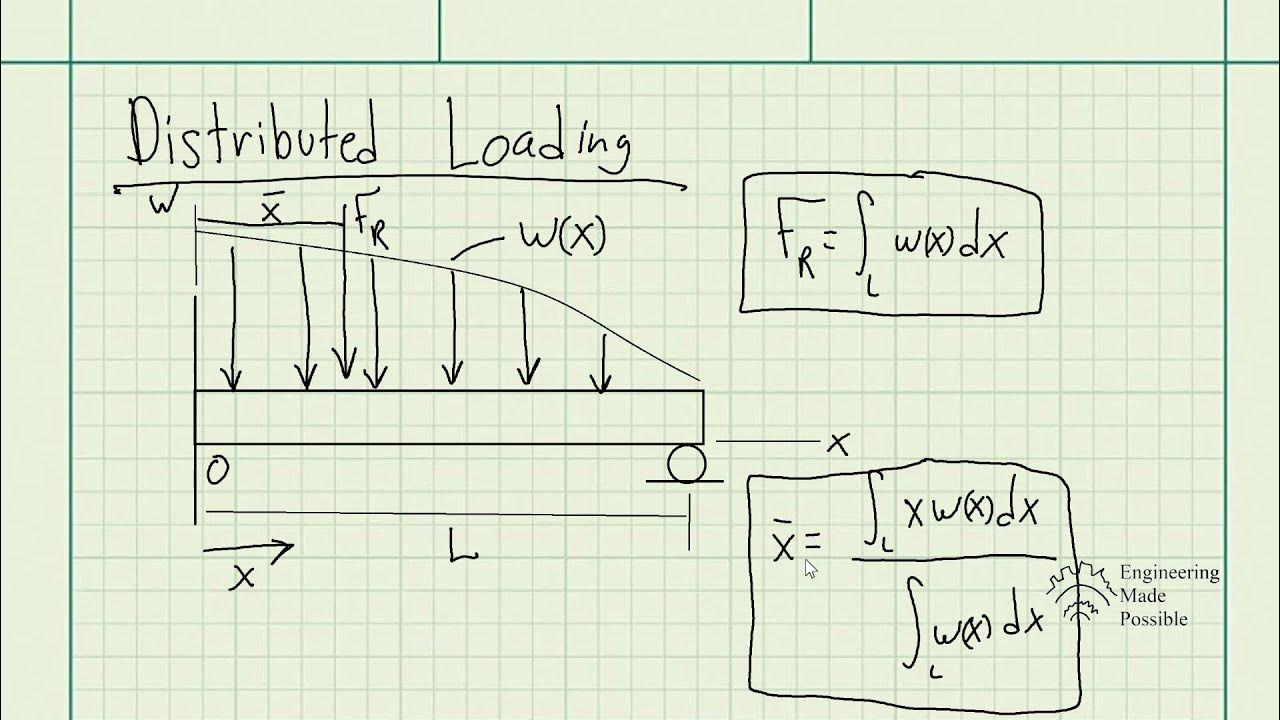 Distributed Loading
w
x̄
F_R
w(x)
F_R = ∫_L w(x) dx
O
x
L
x
x̄ = ∫_L x w(x) dx
∫_L w(x) dx
Engineering
Made
Possible